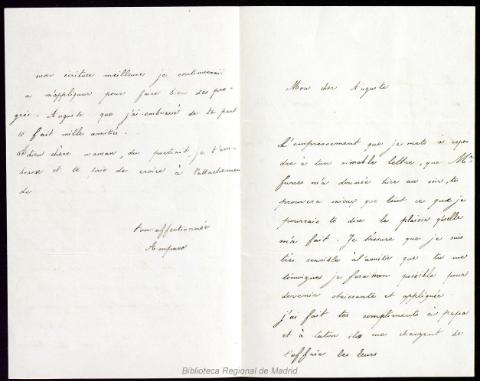 mon écriture meilleure je continuerai
a m'appliquer pour faire bien des pro-
grès. Auguste que j'ai embrassé de ta part
te fait mille amitiés.
Adieu chère maman, du partout je t'em-
brasse et te prie de croire à l'attachement
de
ton affectionnée
Amparo
Mon cher Auguste
L'empressement que je mets à repon
dre à ton aimable lettre, que Mme
m'a donnée hier au soir, te
prouvera mieux que tout ce que je
pourrais te dire le plaisir qu'elle
m'a fait. Je t'assure que je suis
très sensible à l'amitié que tu me
témoignes je ferai mon possible pour
devenir obeissante et appliquée.
j'ai fait tes compliments à papa
et à me chargent de
t'offrir les leurs
Biblioteca Regional de Madrid